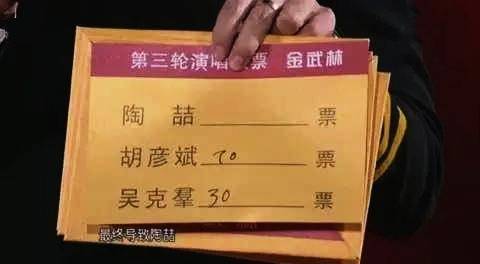 第三轮演唱 票 金武林
陶 喆 票
胡彦斌 70 票
吴克羣 30 票
最终导致陶喆